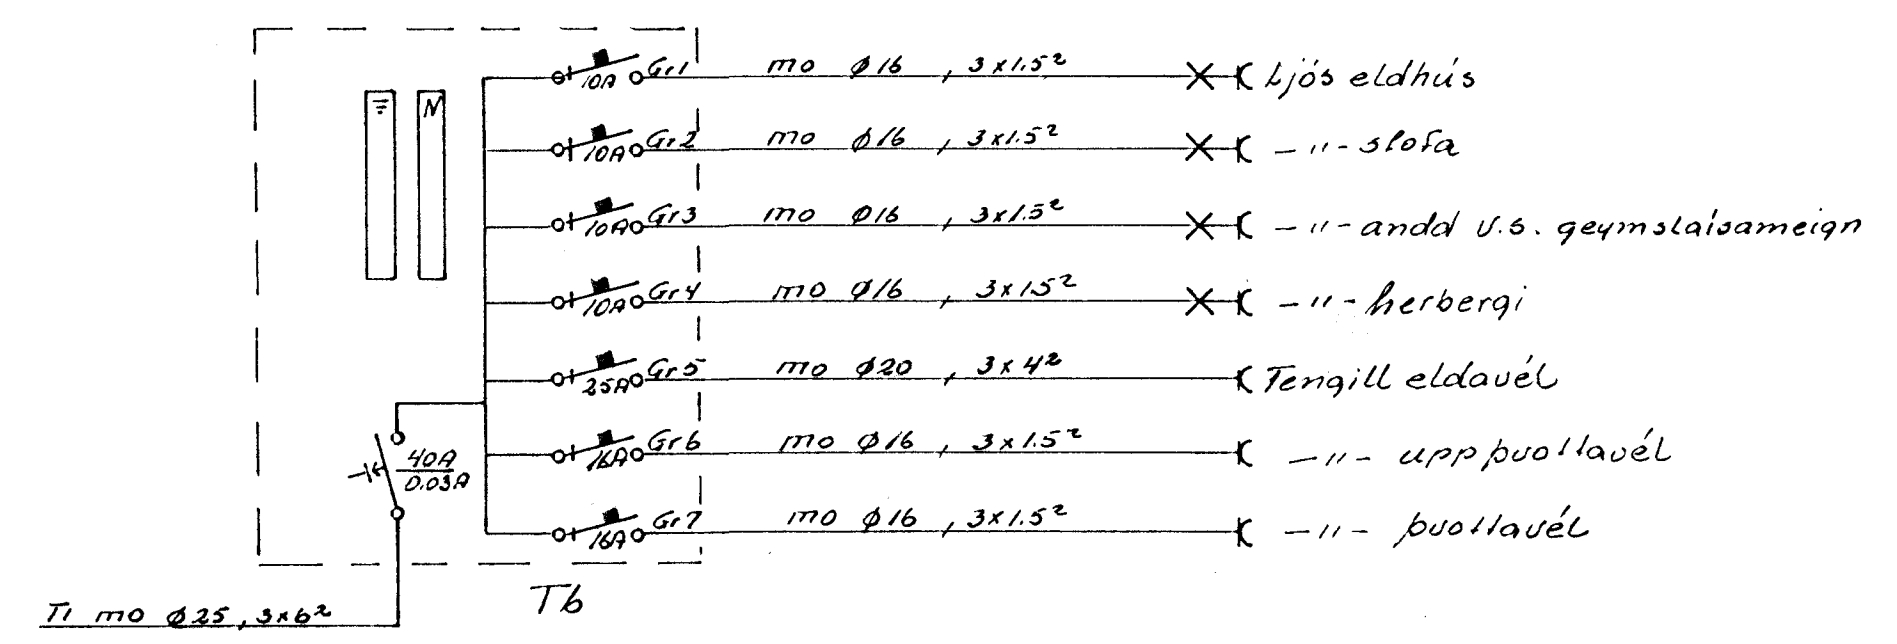 Gr1 mo ø16, 3x1.5² Ljós eldhús
10A
N
Gr2 mo ø16, 3x1.5² -"- stofa
10A
Gr3 mo ø16, 3x1.5² -"- andd v.s. geymslaísameign
10A
Gr4 mo ø16, 3x1.5² -"- herbergi
10A
Gr5 mo ø20, 3x4² Tengill eldavél
25A
Gr6 mo ø16, 3x1.5² -"- uppþvottavél
16A
40A
0.03A
Gr7 mo ø16, 3x1.5² -"- þvottavél
16A
T6
T1 mo ø25, 3x6²